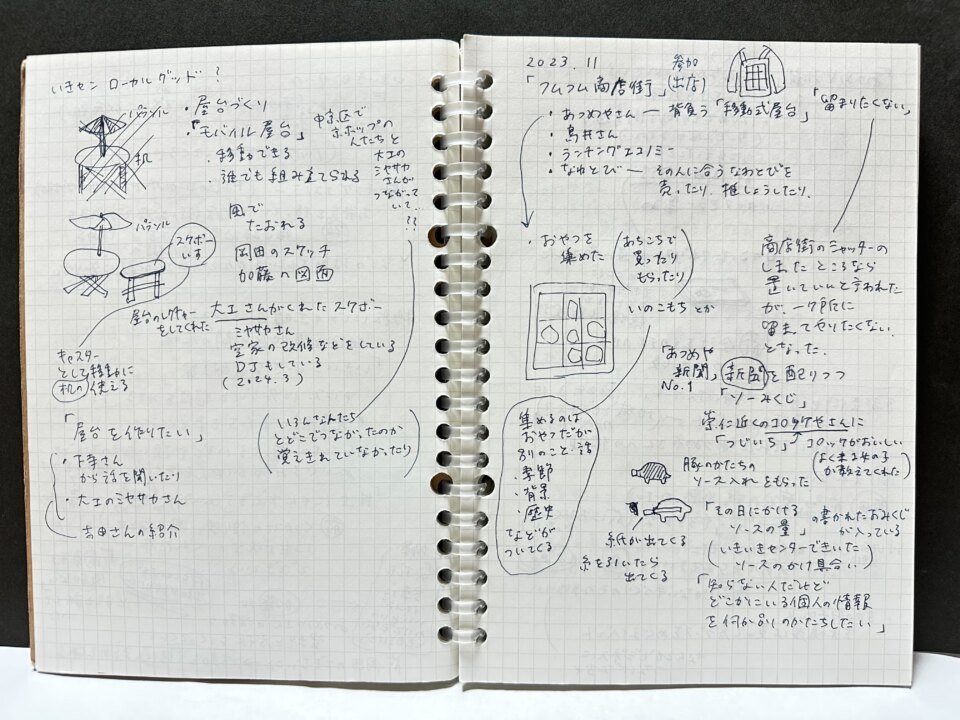 いきセン ローカルグッド?
パラソル
机
・屋台づくり
「モバイル屋台」
・移動できる
・誰でも組み立てられる
中京区で
ホホップの
人たちと
大工の
ミヤサカ
さんが
つながって
いて‥
??
風で
たおれる
パラソル
スケボー
いす
岡田のスケッチ
加藤の図面
屋台のレクチャー
をしてくれた
大工さんがくれたスケボー
ミヤサカさん
空家の改修などをしている
DJもしている
(2024.3)
キャスター
として移動に
机の 使える
「屋台を作りたい」
・下寺さん
から話を聞いたり
・大工のミヤサカさん
吉田さんの紹介
いろんな人たち
とどこでつながったのか
覚えきれていなかったり
2023.11
「フムフム商店街」
参加
(出店)
・あつめやさん ― 背負う「移動式屋台」
「留まりたくない」
・鳥井さん
・ランチングエコノミー
・なわとび ― その人に合うなわとびを
売ったり、推しょうしたり、
・おやつを
集めた
あちこちで
買ったり
もらったり
いのこもち とか
商店街のシャッターの
しまたところなら
置いていいと言われた
が、一ヶ所に
留まてやりたくない
となった.
「あつめや
新聞」
No.1
新聞を配りつつ
「ソーみくじ」
崇仁近くのコロッケやさんに
「つじいち」
コロッケがおいしい
(よく来る女の子
が教えてくれた)
集めるのは
おやつだが
別のこと・話
・季節
・背景
・歴史
などが
ついてくる
豚のかたちの
ソース入れをもらった
紙が出てくる
糸を引いたら
出てくる
「その日にかける
ソースの量」の書かれたおみくじ
が入っている
(いきいきセンターできいた
ソースのかけ具合い)
「知らない人だけど
どこかにいる個人の情報
を何か別のかたちしたい」